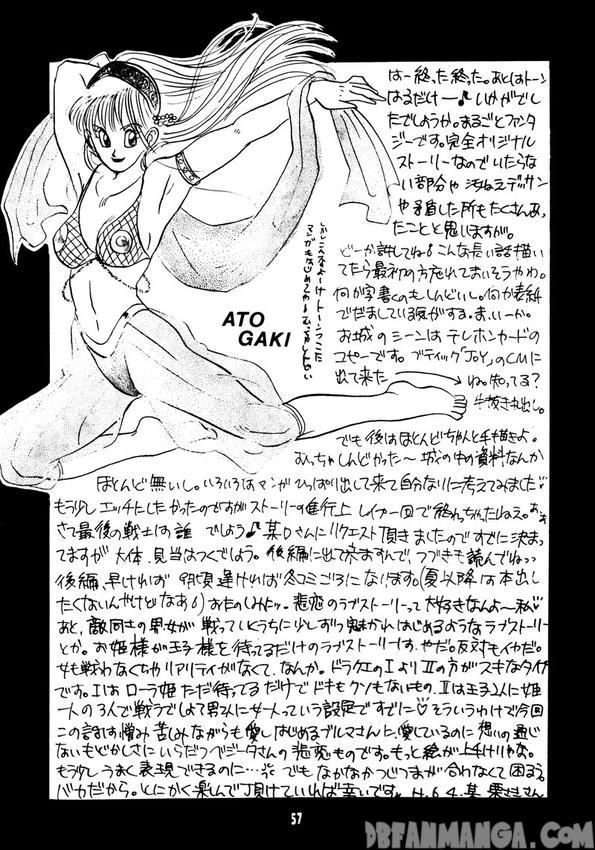 はー終った終った。あとはトーン
はるだけー♪いかがでし
たでしょうか。まるごとファンタ
ジーです。完全オリジナル
ストーリーなのでいたらな
い部分や
や矛盾した所もたくさんあっ
たことと思いますが。
どーか許してね。こんな長い話描い
てたら最初の方忘れてまいそうやわ。
何か字書くのもしんどいし。何か表紙
でだましている気がする。まいーか。
お城のシーンはテレホンカードの
コピーです。ブティック「JOY」のCMに
出て来た
ね。知ってる?
手抜き丸出し。
ATO
GAKI
でも後はほとんどちゃんと手描きよ。
むっちゃしんどかった〜城の中の資料なんか
ほとんど無いし。いろいろはマンガひっぱり出して来て自分なりに考えてみました
もう少しエッチにしたかったのですがストーリーの進行上レイプ一回で終っちゃったしねえ。
さて最後の戦士は誰でしょう♪某Dさんにリクエスト頂きましたのですでに決まっ
てますが大体、見当はつくでしょう。後編に出て来ますんで、つづきも読んでねっっ
後編、早ければ 頃遅ければ冬コミごろになります。(夏以降は本出し
たくないんやけどなあ)おたのしみにッ。悲恋のラブストーリーって大好きなんよ〜私
あと、敵同志の男女が戦っていくうちに少しずつ魅かれはじめるようなラブストーリー
とか。お姫様が王子様を待ってるだけのラブストーリーは、やだ。反対もイヤだ。
女も戦わなくちゃリアリティがなくて、なんか。ドラクエのIよりIIの方がスキなタイプ
です。Iはローラ姫ただ待ってるだけでドキもクソもないもの。IIは王子2人に姫
一人の3人で戦うでしょて男2人に女一人っていう設定ですでに♡そういうわけで今回
この話は悩み苦しみながらも愛しはじめるブルマさんに、愛しているのに想いの通じ
ないもどかしさにいらだつベジータさんの悲恋ものです。もっと絵が上手けりゃな。
もう少しうまく表現できるのに…でもなかなかつじつまが合わなくて困るう。
バカだから。とにかく楽しんで頂けていれば幸いです。
57
DBFANMANGA.COM